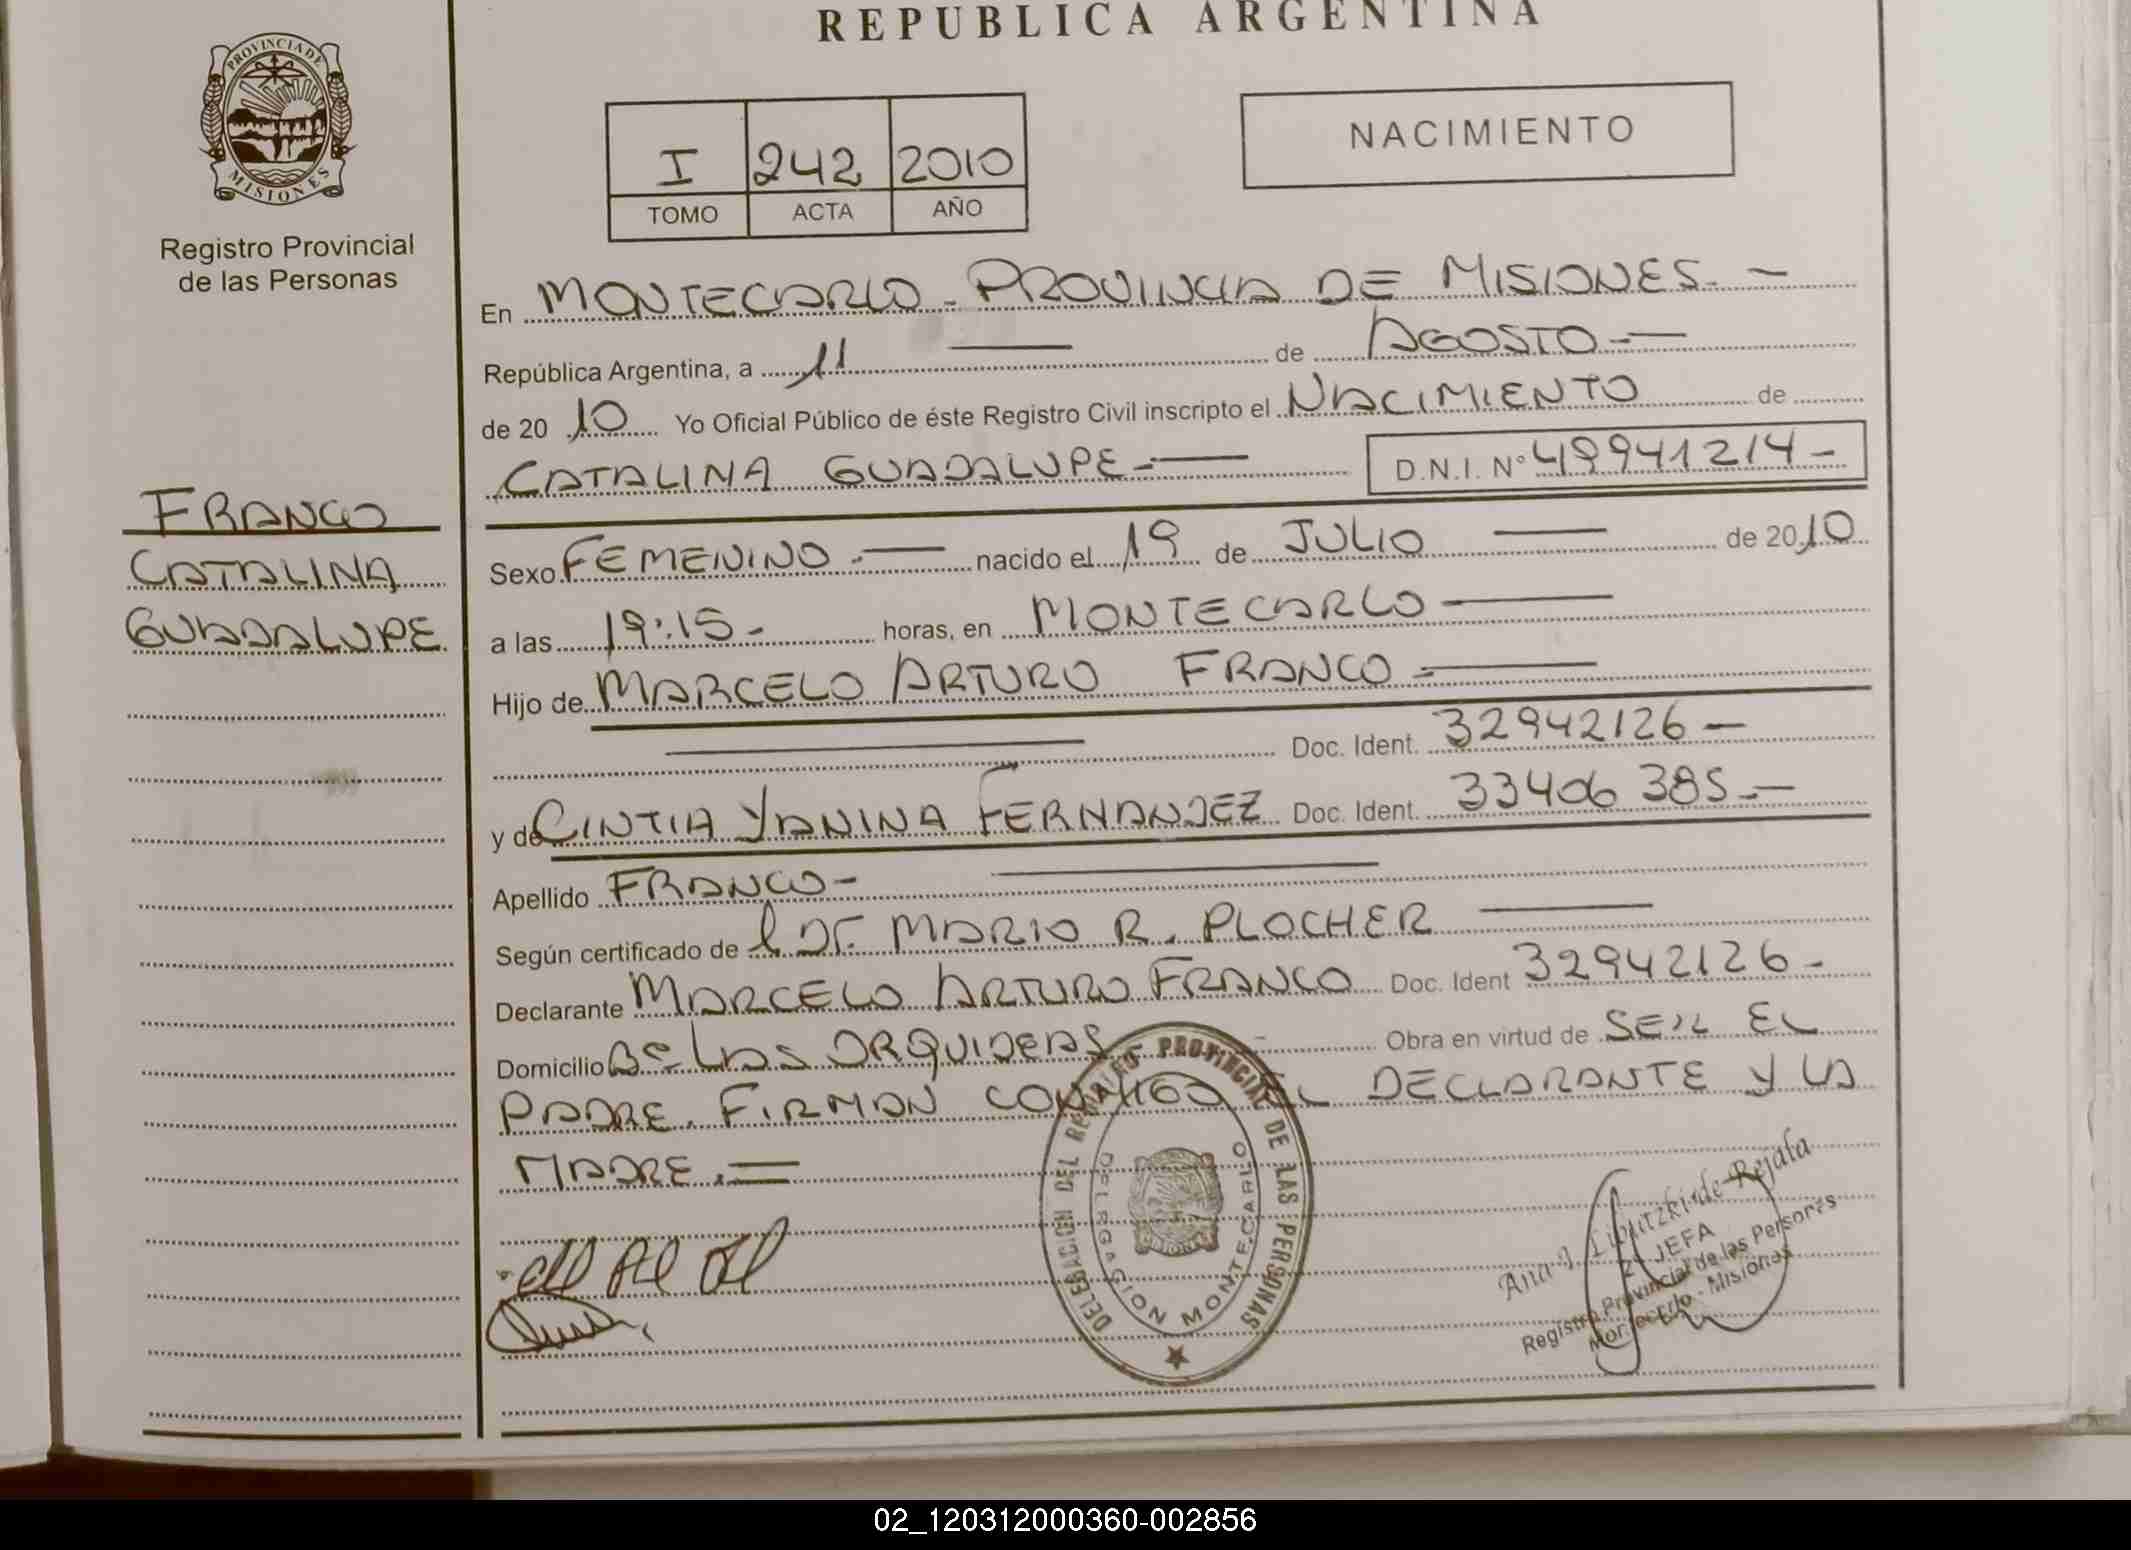 REPUBLICA ARGENTINA
PROVINCIA DE
MISIONES
Registro Provincial
de las Personas
I 242 2010
TOMO ACTA AÑO
NACIMIENTO
En MONTECARLO - PROVINCIA DE MISIONES. -
República Argentina, a 11 — de AGOSTO -—
de 20 10 Yo Oficial Público de éste Registro Civil inscripto el NACIMIENTO de
CATALINA GUADALUPE -— D.N.I. N° 49941214 -
FRANCO
CATALINA
GUADALUPE
Sexo FEMENINO - — nacido el 19 de JULIO — de 20 10
a las 19:15 - horas, en MONTECARLO —
Hijo de MARCELO ARTURO FRANCO -—
— Doc. Ident. 32942126 —
y de CINTIA YANINA FERNANDEZ Doc. Ident. 33406385 -—
Apellido FRANCO - —
Según certificado de Dr. MARIO R. PLOCHER —
Declarante MARCELO ARTURO FRANCO Doc. Ident 32942126 -
Domicilio Bº LAS ORQUIDEAS - Obra en virtud de SER EL
PADRE. FIRMAN CONMIGO EL DECLARANTE Y LA
MADRE. =
DELEGACION DEL REG PROVINCIAL DE LAS PERSONAS
DELEGACION MONTECARLO
Ana de Rejala
JEFA
Registro Provincial de las Personas
Montecarlo - Misiones
02_120312000360-002856